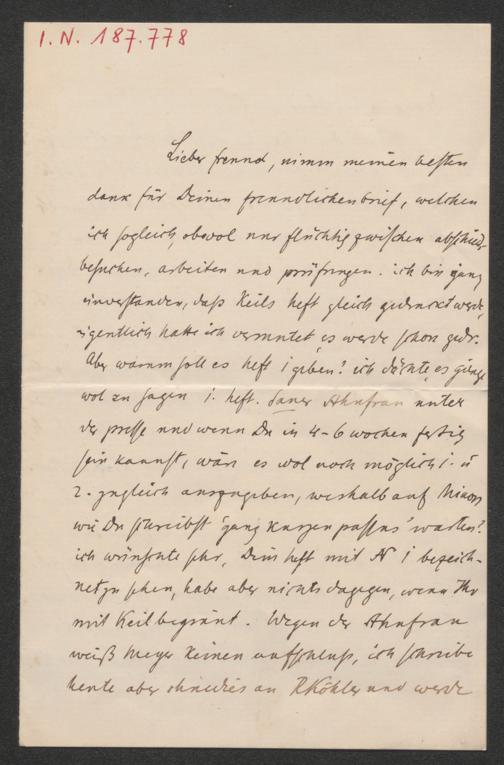 I. N. 187.778
Lieber freund, nimm meinen besten
dank für Deinen freundlichen brief, welchen
ich sogleich, obwol nur flüchtig zwischen abschieds-
besuchen, arbeiten und prüfungen. ich bin ganz
einverstanden, dass Keils heft gleich gedruckt werde,
eigentlich hatte ich vermutet, es werde schon gedr.
Aber warum soll es heft 1 geben? ich dächte, es gienge
wol zu sagen 1. heft. Sauer Ahnfrau unter
der presse und wenn Du in 4-6 wochen fertig
sein kannst, wäre es wol noch möglich 1. u
2. zugleich auszugeben, weshalb auf Minor
wie Du schreibst 'ganz kurzen passus' warten?
ich wünschte sehr, Dein heft mit N 1 bezeich-
net zu sehen, habe aber nichts dagegen, wenn Ihr
mit Keil beginnt. Wegen der Ahnfrau
weiß Meyer keinen aufschluss, ich schreibe
heute aber ohnedies an RKöhler und werde